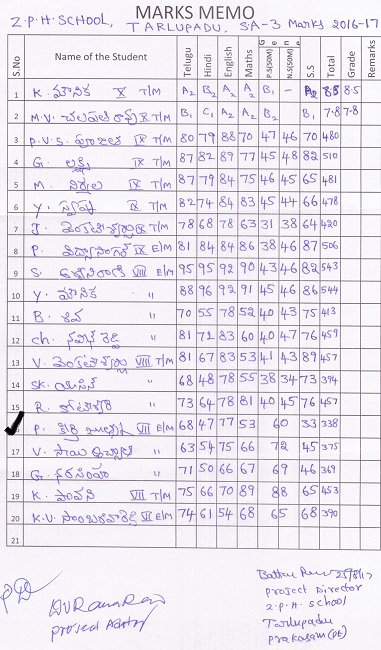 MARKS MEMO
Z.P.H. SCHOOL, TARLUPADU, SA-3 Marks 2016-17
S.No Name of the Student Telugu Hindi English Maths Gen P.S(50M) N.S(50M) S.S Total Grade Remarks
1 K. మౌనిక X T/M A2 B2 A2 A2 B1 - A2 8.8 8.5
2 M.V. X T/M B1 C1 A2 A2 B2 B1 7.8 7.8
3 P.V.S. IX T/M 80 79 88 70 47 46 70 480
4 G. లక్ష్మి IX T/M 87 82 89 77 45 48 82 510
5 M. నిర్మల IX T/M 87 79 84 75 46 45 65 481
6 Y. స్వప్న IX T/M 82 74 84 83 45 44 66 478
7 T. IX T/M 78 68 78 63 31 38 64 420
8 P. విద్యాసాగర్ IX E/M 81 84 84 86 38 46 87 506
9 S. VIII E/M 95 95 92 90 43 46 82 543
10 Y. మౌనిక " 88 96 92 91 45 46 86 544
11 B. శివ " 70 55 78 52 40 43 75 413
12 ch. నవీన్ రెడ్డి " 81 72 83 60 40 47 76 459
13 V. VIII T/M 81 67 83 53 41 43 89 457
14 SK. యాసిన్ " 68 48 78 55 38 34 73 394
15 R. " 73 64 78 81 40 45 76 457
P. VII E/M 68 47 77 53 60 33 338
17 V. సాయి " 63 54 75 66 72 45 375
18 G. నరసింహా " 71 50 66 67 69 46 369
19 K. పావని VII T/M 75 66 70 89 88 65 453
20 K.V. సాంబశివారెడ్డి VI E/M 74 61 54 68 65 68 390
21
25/8/17
Project Director
Z.P.H. School
Tarlupadu
Prakasam (Dt)